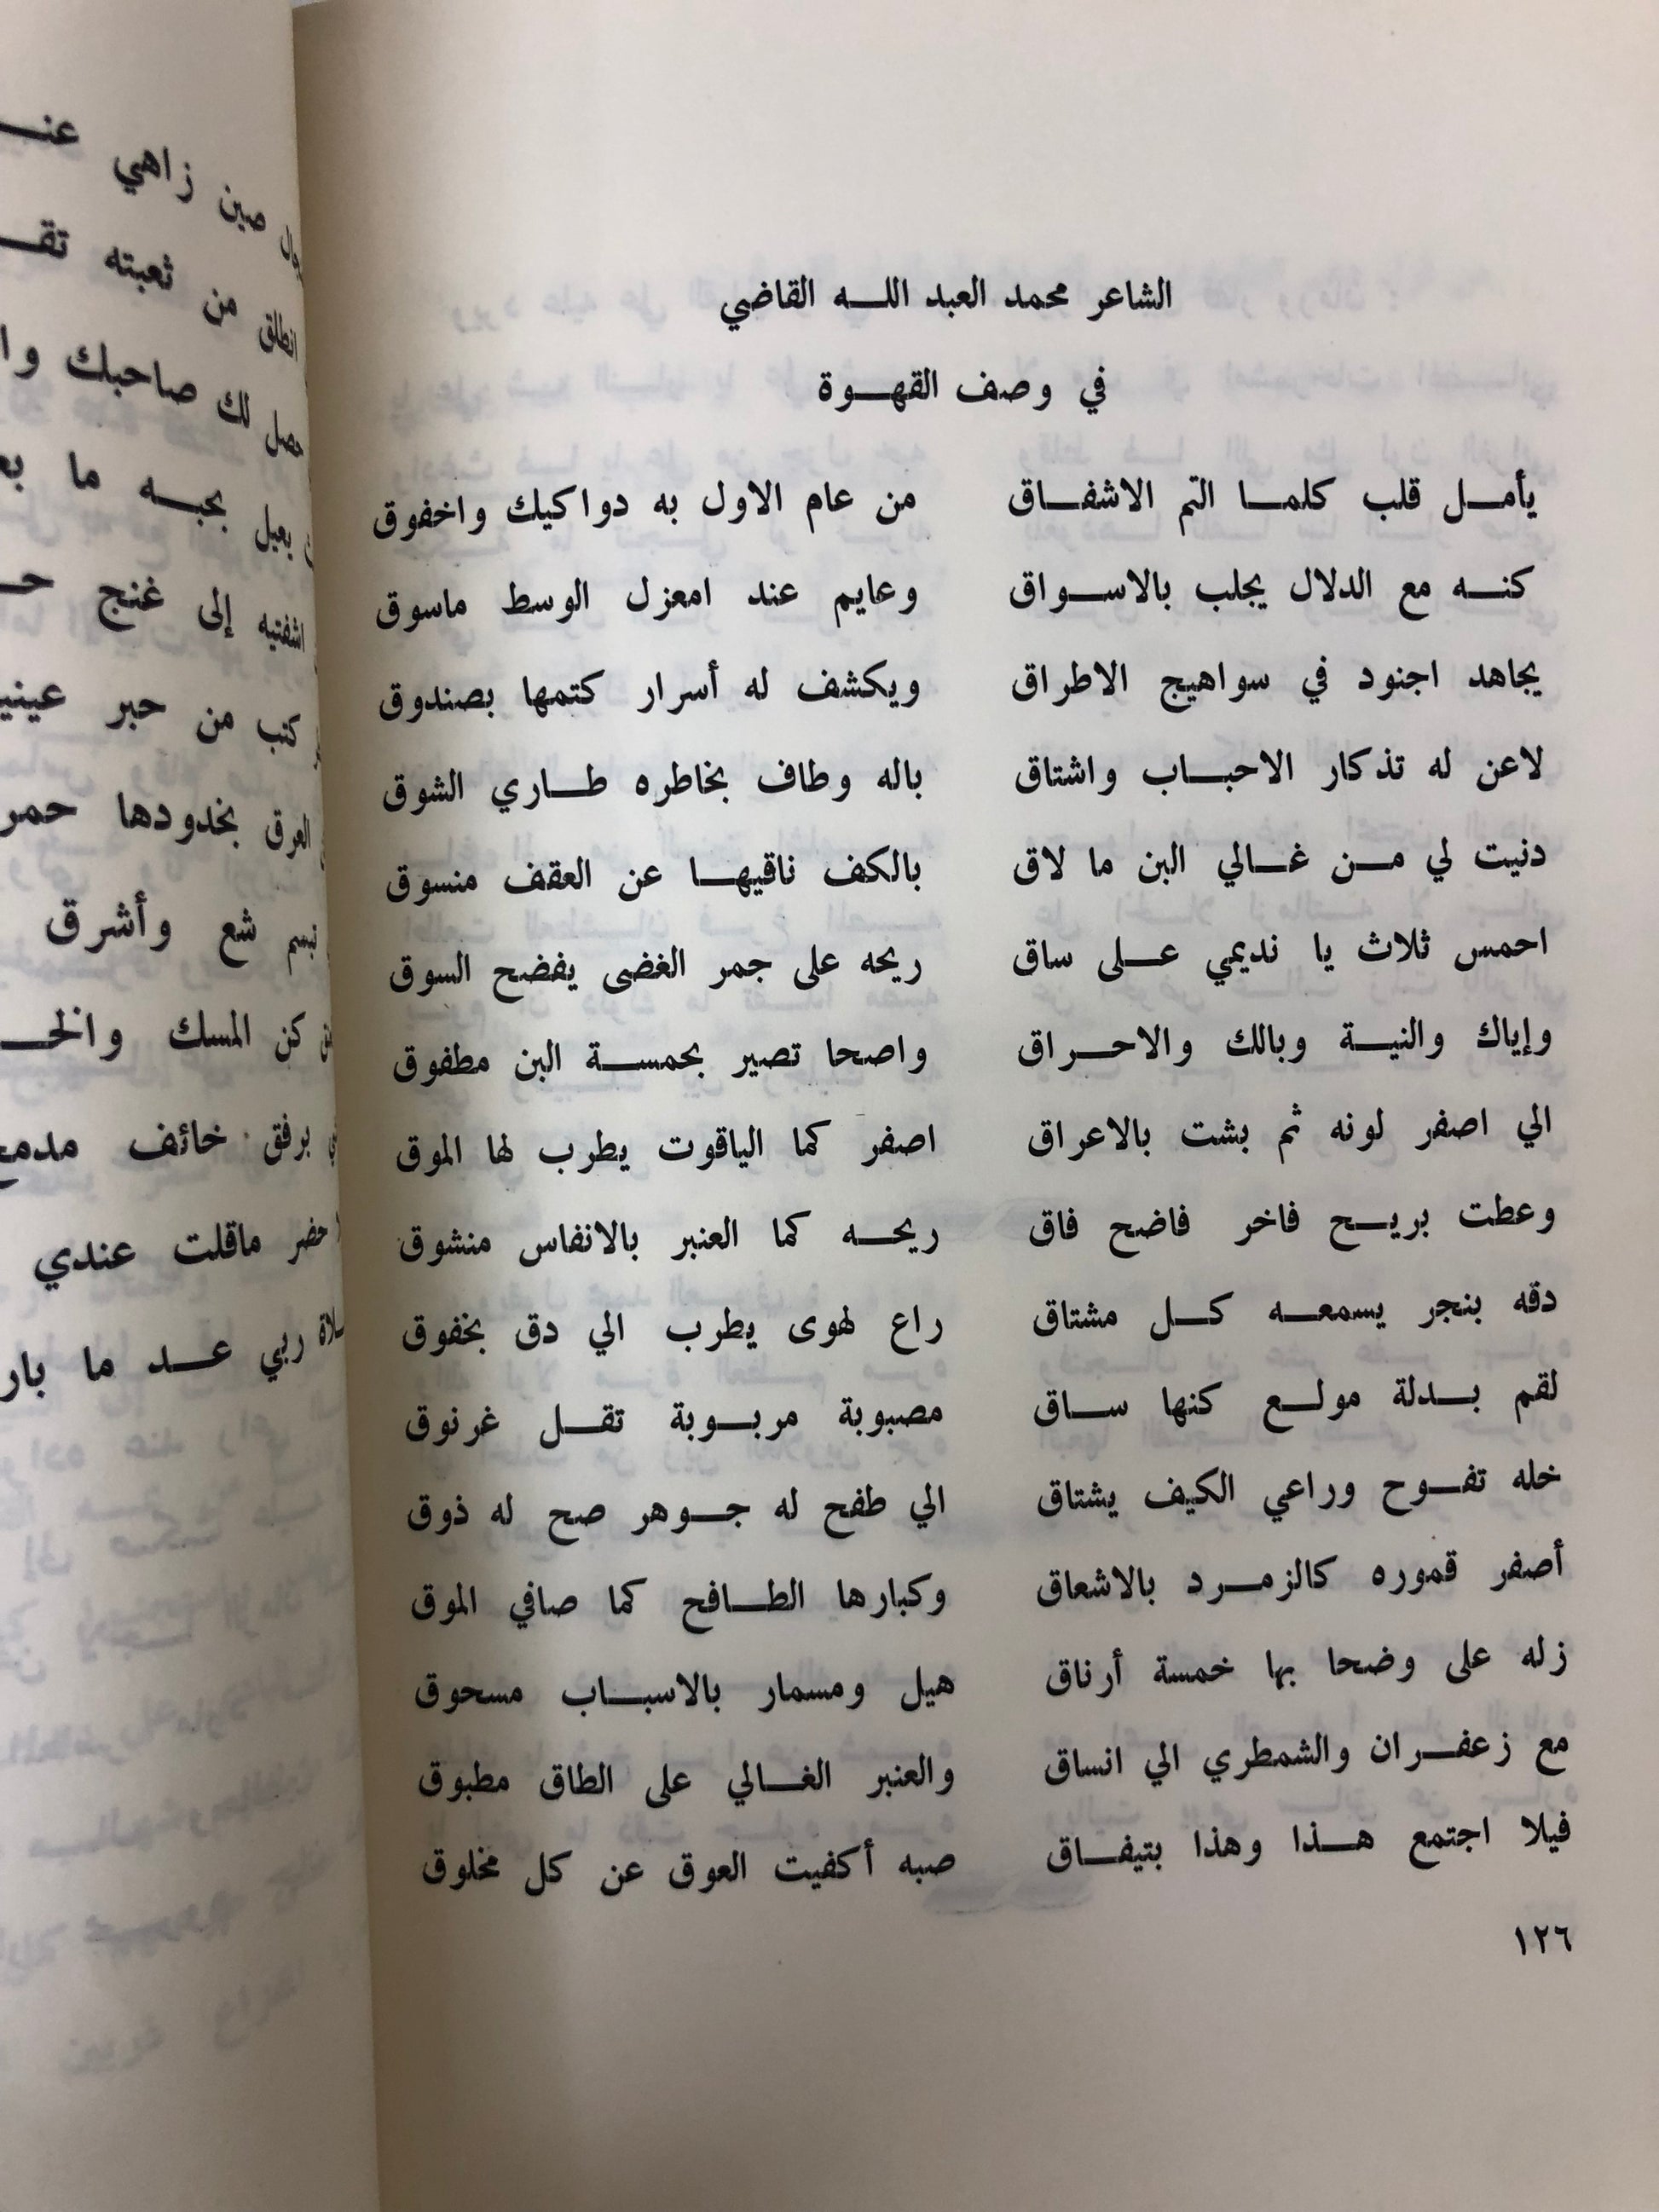 الشاعر محمد العبد اللـه القاضي
في وصف القهوة
يأمل قلب كلما التم الاشفاق من عام الاول به دواكيك واخفوق
كنه مع الدلال يجلب بالاسواق وعايم عند امعزل الوسط ماسوق
يجاهد اجنود في سواهيج الاطراق ويكشف له أسرار كتمها بصندوق
لاعن له تذكار الاحباب واشتاق باله وطاف بخاطره طاري الشوق
دنيت لي من غالي البن ما لاق بالكف ناقيها عن العقف منسوق
احمس ثلاث يا نديمي على ساق ريحه على جمر الغضى يفضح السوق
وإياك والنية وبالك والاحراق واصحا تصير بحمسة البن مطفوق
الي اصفر لونه ثم بشت بالاعراق اصفر كما الياقوت يطرب لها الموق
وعطت بريح فاخر فاضح فاق ريحه كما العنبر بالانفاس منشوق
دقه بنجر يسمعه كل مشتاق راع لهوى يطرب الي دق بخفوق
لقم بدلة مولع كنها ساق مصبوبة مربوبة تقل غرنوق
خله تفوح وراعي الكيف يشتاق الي طفح له جوهر صح له ذوق
أصفر قموره كالزمرد بالاشعاق وكبارها الطافح كما صافي الموق
زله على وضحا بها خمسة أرناق هيل ومسمار بالاسباب مسحوق
مع زعفران والشمطري الي انساق والعنبر الغالي على الطاق مطبوق
فيلا اجتمع هذا وهذا بتيفاق صبه أكفيت العوق عن كل مخلوق
١٢٦
زاهي صين
من ثعبته
انطلق
حصل لك صاحبك
بعيل بحبه ما
اشفتيه إلى غنج
كتب من حبر
العرق بخدودها
تبسم شع وأشرق
كن المسك
برفق خائف
حضر ماقلت عندي
ربي عد ما